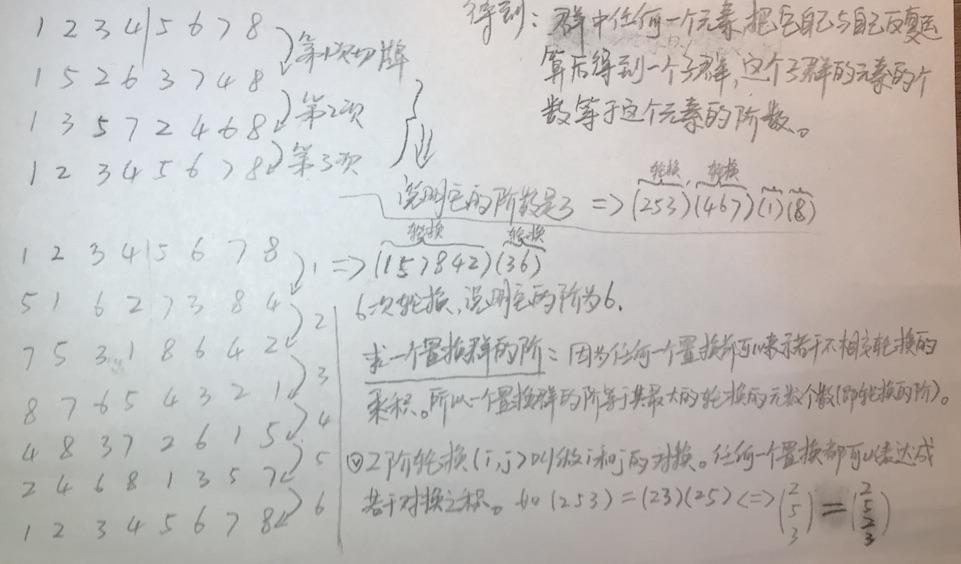 1 2 3 4|5 6 7 8
第1次切牌
1 5 2 6 3 7 4 8
第2次
1 3 5 7 2 4 6 8
第3次
1 2 3 4 5 6 7 8
得到：群中任何一个元素，把它自己与自己反复运
算后得到一个子群，这个子群的元素的个
数等于这个元素的阶数。
轮换 轮换
说明它的阶数是3 => (253)(467)(1)(8)
轮换 轮换
1 2 3 4|5 6 7 8 1 => (157842)(36)
5 1 6 2 7 3 8 4 2
7 5 3 1 8 6 4 2 3
8 7 6 5 4 3 2 1 4
4 8 3 7 2 6 1 5 5
2 4 6 8 1 3 5 7 6
1 2 3 4 5 6 7 8
6次轮换，说明它的阶为6.
求一个置换群的阶：因为任何一个置换都可以表示若干不相交轮换的
乘积。所以一个置换群的阶等于其最大的轮换的元数个数(即轮换的阶)。
2阶轮换(i,j)叫做i和j的对换。任何一个置换都可以表达成
若干对换之积。如(253)=(23)(25)<=>(2 5 3)=(2 5 2 3)